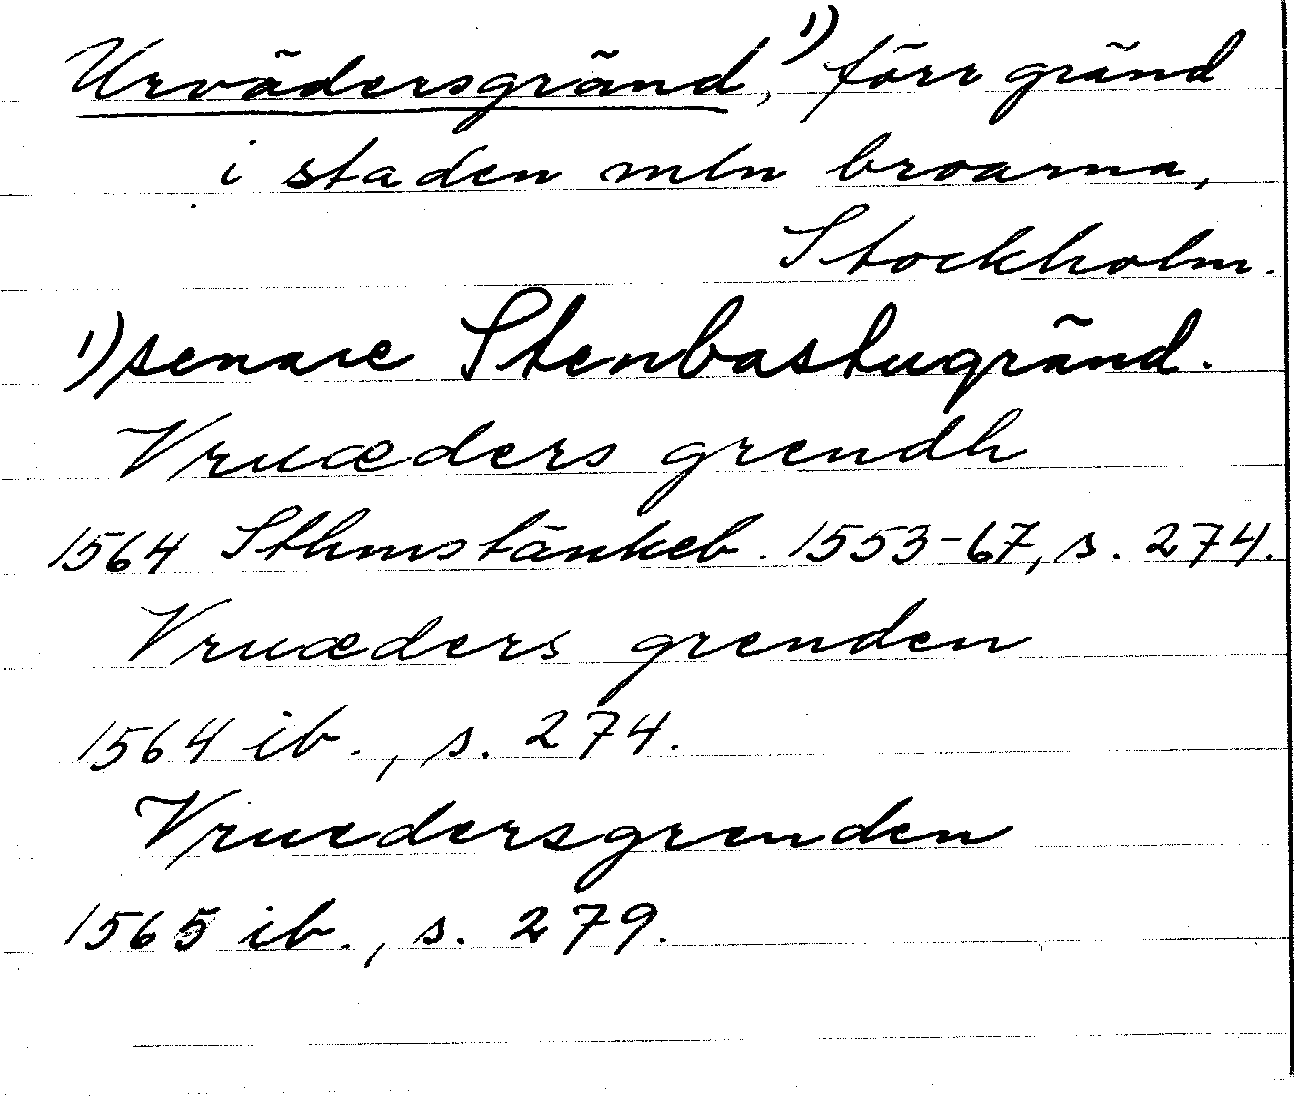 Urvädersgränd,¹⁾ förr gränd
i staden mln broarna,
Stockholm.
¹⁾senare Stenbastugränd.
Vruæders grendh
1564 Sthmstänkeb. 1553-67, s. 274.
Vruæders grenden
1564 ib., s. 274.
Vruedersgrenden
1565 ib., s. 279.